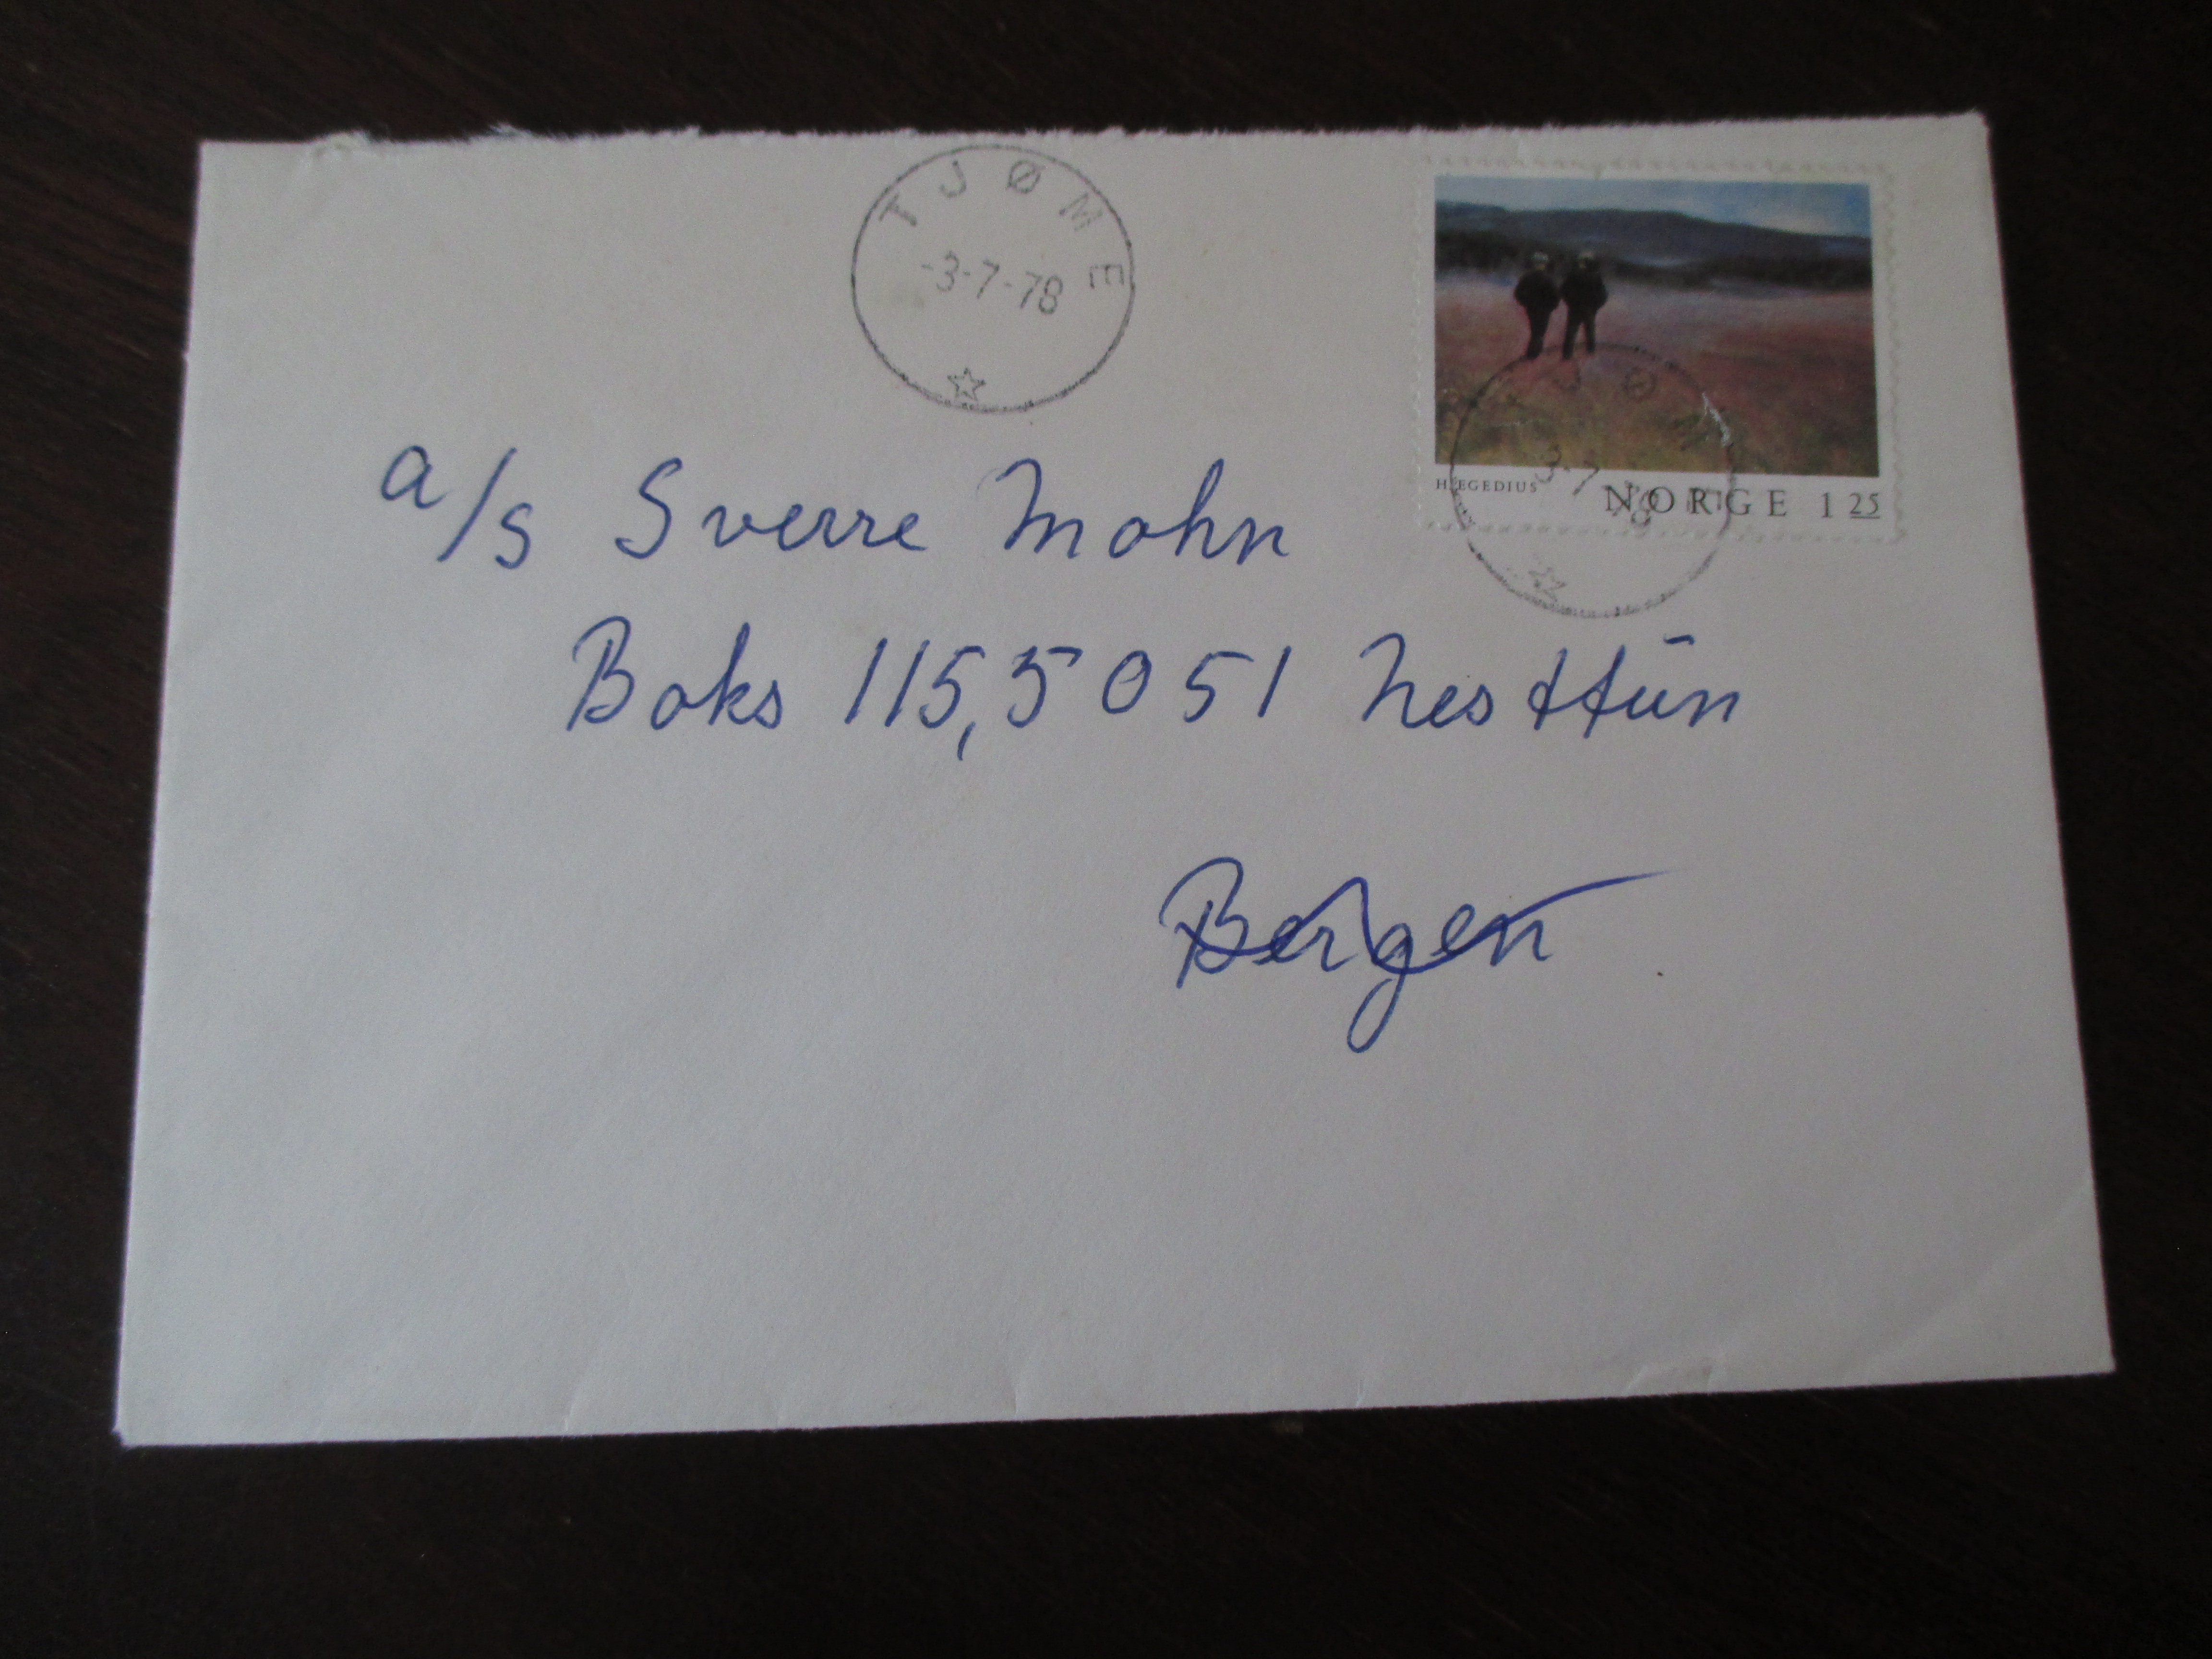 TJØME
-3-7-78
HÆGEDIUS
NORGE 1 25
3-7-78
a/s Sverre Mohn
Boks 115, 5051 Nesttūn
Bergen